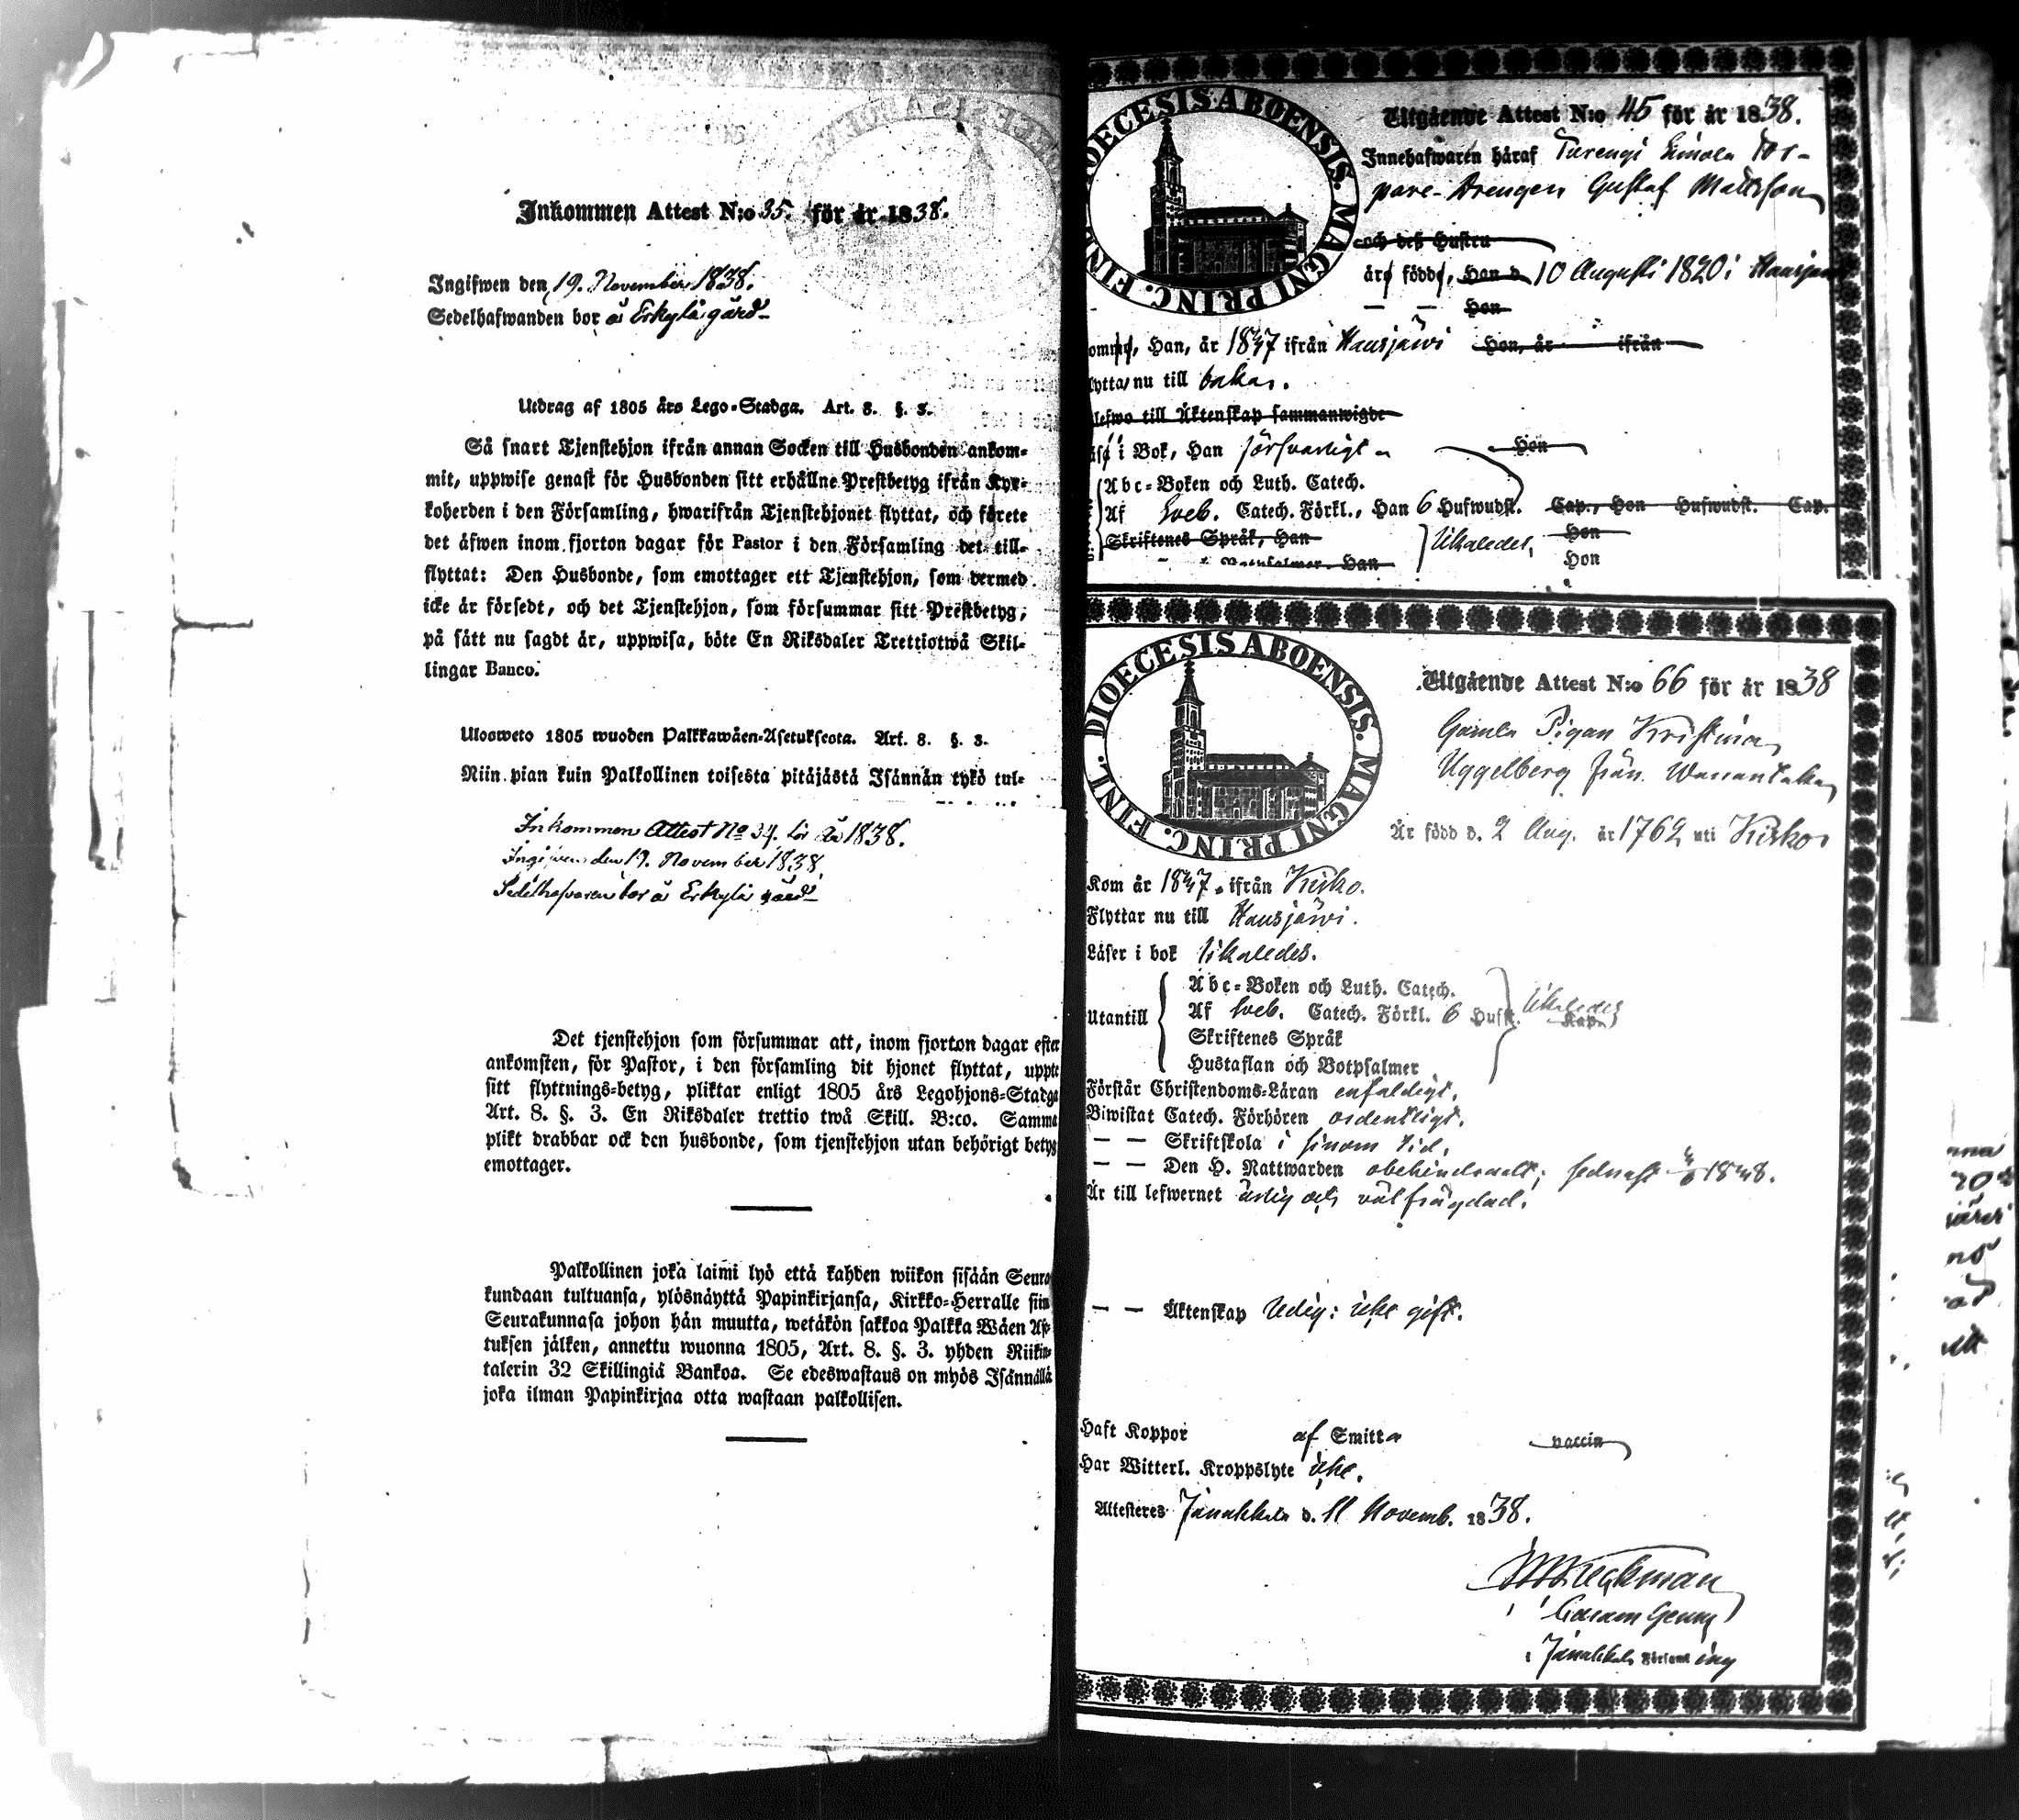 Inkommen Attest N:o 35. för år 1838.
Ingifwen den 19. November 1838.
Sedelhafwanden bor å Erkylä gård
Utdrag af 1805 års Lego-Stadga. Art. 8. §. 3.
Så snart Tjenstehjon ifrån annan Socken till Husbonden ankom-
mit, uppwise genast för Husbonden sitt erhållne Prestbetyg ifrån Kyr-
koherden i den Församling, hwarifrån Tjenstehjonet flyttat, och förete
det äfwen inom fjorton dagar för Pastor i den Församling det till-
flyttat: Den Husbonde, som emottager ett Tjenstehjon, som dermed
icke är försedt, och det Tjenstehjon, som försummar sitt Prestbetyg,
på sätt nu sagdt är, uppwisa, böte En Riksdaler Trettiotwå Skil-
lingar Banco.
Ulosweto 1805 wuoden Palkkawäen-Asetuksesta. Art. 8. §. 3.
Niin pian kuin Palkollinen toisesta pitäjästä Isännän tykö tul-
Inkommen Attest No 34. för år 1838.
Ingifven den 19. November 1838.
Sedelhafvaren bor å Erkylä gård
Det tjenstehjon som försummar att, inom fjorton dagar efter
ankomsten, för Pastor, i den församling dit hjonet flyttat, uppte
sitt flyttnings-betyg, pliktar enligt 1805 års Legohjons-Stadga
Art. 8. §. 3. En Riksdaler trettio twå Skill. B:co. Samma
plikt drabbar ock den husbonde, som tjenstehjon utan behörigt betyg
emottager.
Palkollinen joka laimi lyö että kahden wiikon sisään Seura
kundaan tultuansa, ylösnäyttä Papinkirjansa, Kirkko-Herralle siin
Seurakunnasa johon hän muutta, wetäkön sakkoa Palkka Wäen Ase-
tuksen jälken, annettu wuonna 1805, Art. 8. §. 3. yhden Riikin-
talerin 32 Skillingiä Bankoa. Se edeswastaus on myös Isännällä
joka ilman Papinkirjaa otta wastaan palkollisen.
DIOECESIS ABOENSIS. MAGNI PRINC. FINL.
Utgående Attest N:o 45 för år 1838.
Innehafwaren häraf Turengi Simola Tor-
pare-Drengen Gustaf Mattsson
och dess Hustru
är född, Han d. 10 Augusti 1820 i Hausjärvi
— — Hon
kommit, Han, år 1837 ifrån Hausjärvi Hon, år ifrån
flytta nu till
lefwo till Äktenskap sammanwigde
i Bok, Han försvarligt Hon
Abc-Boken och Luth. Catech.
Af Sveb. Catech. Förkl., Han 6 Hufwudst. Cap., Hon Hufwudst. Cap.
Skriftenes Språk, Han likaledes, Hon
Botpsalmer, Han Hon
DIOECESIS ABOENSIS. MAGNI PRINC. FINL.
Utgående Attest N:o 66 för år 1838
Gamla Pigan Kristina
Uggelberg från Wanantaka
Är född d. 2 Aug. år 1762 uti Kisko
Kom år 1837 ifrån Kisko.
Flyttar nu till Hausjärvi.
Läser i bok likaledes.
Utantill
Abc-Boken och Luth. Catech.
Af Sveb. Catech. Förkl. 6 Hufst. Kap. likaledes
Skriftenes Språk
Hustaflan och Botpsalmer
Förstår Christendoms-Läran enfaldigt.
Biwistat Catech. Förhören ordentligt.
— — Skriftskola i sinom tid.
— — Den H. Nattwarden obehindradt; sednast 1838.
Är till lefwernet ärlig och välfrägdad.
— — Äktenskap ledig: icke gift.
Haft Koppor af Smitta vaccin
Har Witterl. Kroppslyte icke.
Attesteres Janakkala d. 11 Novemb. 1838.
i Janakkala Församling